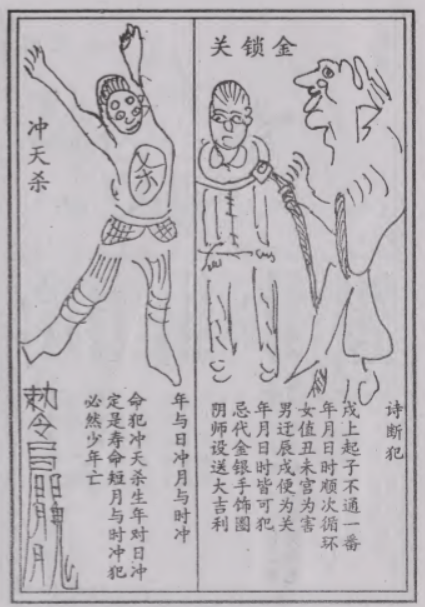 金锁关
诗断犯
戌上起子不通一番
年月日时顺次循环
女值丑未宫为害
男迁辰戌便为关
年月日时皆可犯
忌代金银手饰圈
阴师设送大吉利
冲天杀
杀
年与日冲月与时冲
命犯冲天杀生年对日冲
定是寿命短月与时冲犯
必然少年亡
勅令